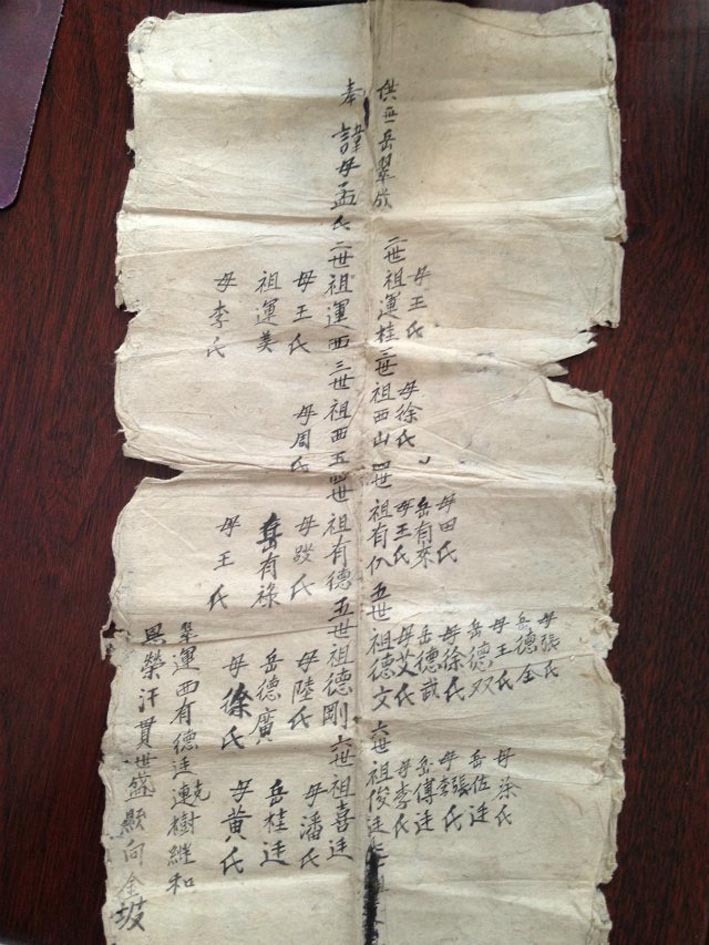 母張氏
岳德全
母王氏
岳德双
母徐氏
岳德武
母艾氏
母田氏
岳有來
母王氏
母徐氏
母王氏
母徐氏
岳佐廷
母張氏
岳傅廷
母李氏
供 岳翠成 二世祖運桂三世祖西山 四世祖有仈 五世祖德文 六世祖俊廷
奉 諱母孟氏二世祖運西三世祖西五四世祖有德五世祖德剛六世祖喜廷
母王氏
母周氏
母段氏
母陸氏
母潘氏
祖運美
岳有祿
岳德廣
岳桂廷
母李氏
母王氏
母徐氏
母黃氏
翠運西有德廷連樹継和
興榮汗貫世盛顯向金坡